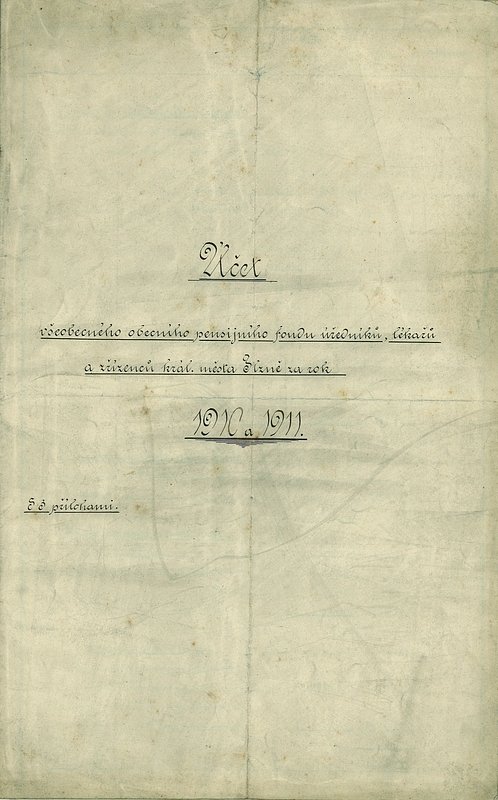 Účet
všeobecného obecního pensijního fondu úředníků, lékařů
a zřízenců král. města Plzně za rok
1910 a 1911.
S 3 přílohami.